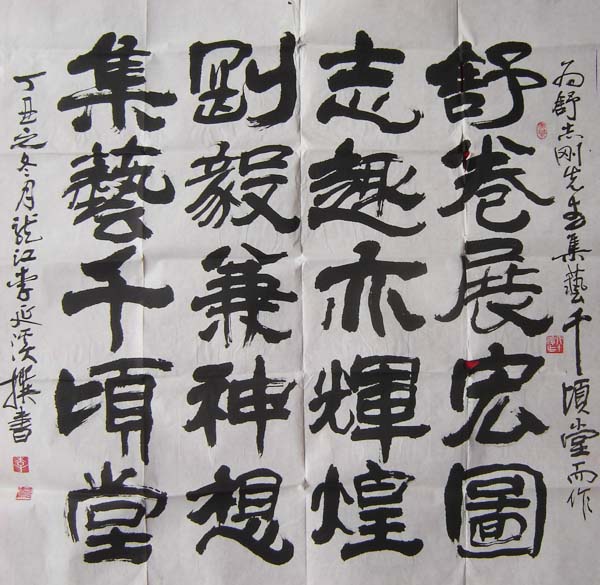 为舒志刚先生集藝千頃堂而作
舒卷展宏圖
志趣亦輝煌
剛毅兼神想
集藝千頃堂
丁丑之冬月龙江李延溪撰書